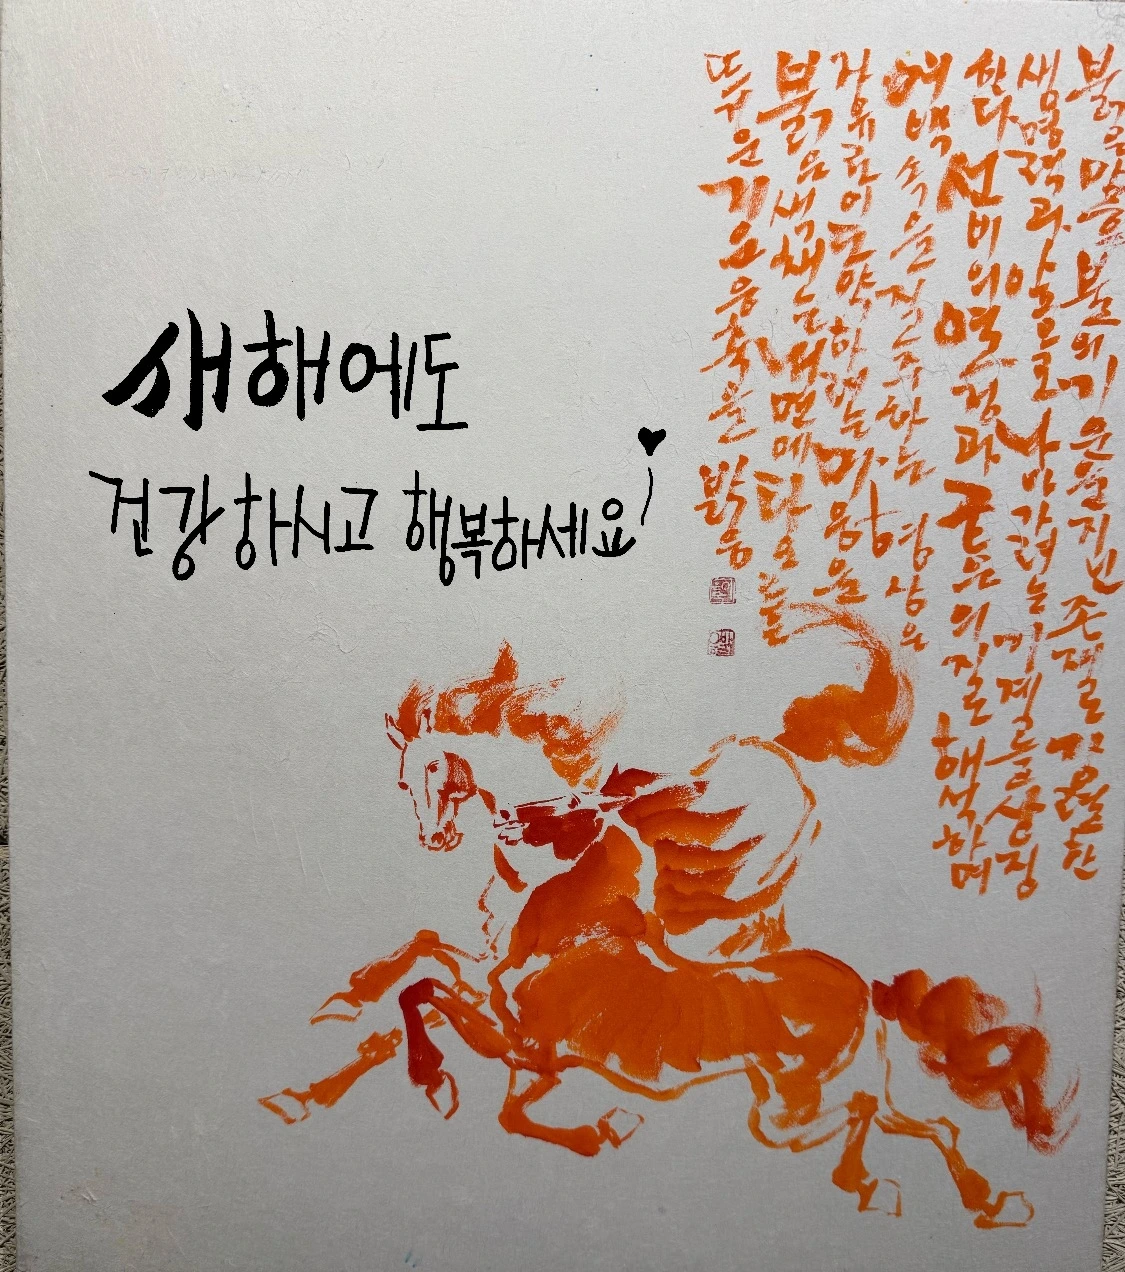 새해에도
건강하시고 행복하세요
붉은 말은 불의 기운을 지닌 존재로 강렬한
생명력과 앞으로 나아가려는 기개를 상징
한다 선비의 열정과 굳은 의지로 해석하며
여백 속을 질주하는 형상은
자유로이 도약하려는 마음을
붉은 색채는 내면에 타오르는